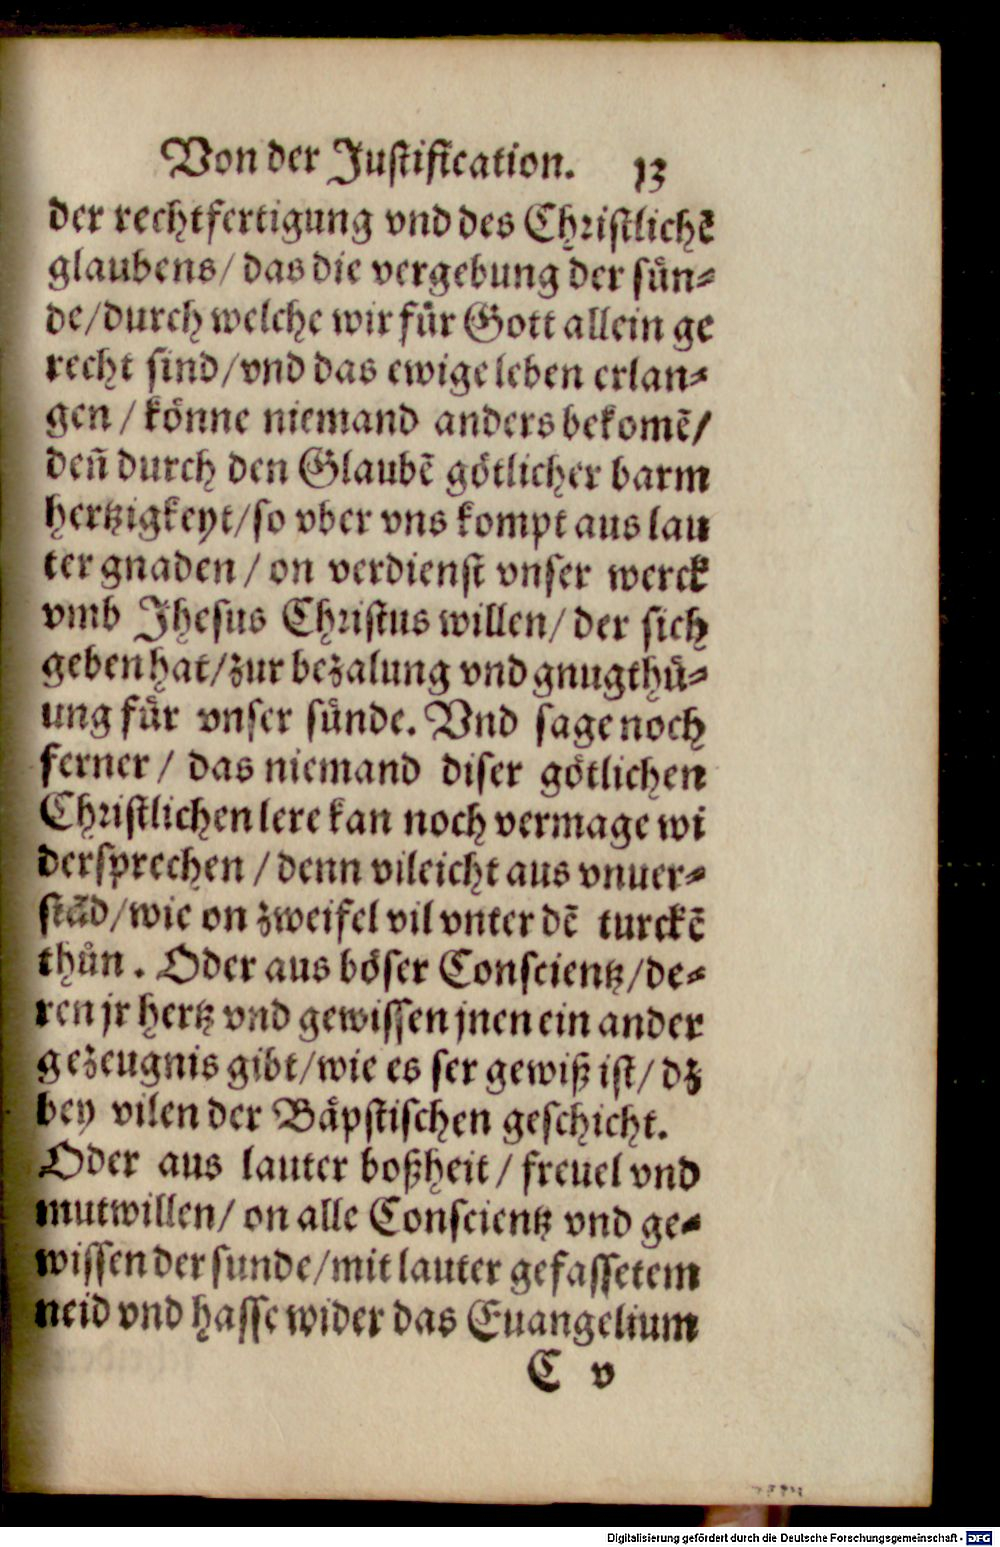 Von der Justification. 13
der rechtfertigung vnd des Christlichē
glaubens/ das die vergebung der sün⸗
de/durch welche wir für Gott allein ge
recht sind/vnd das ewige leben erlan⸗
gen / könne niemand anders bekomē/
deñ durch den Glaubē götlicher barm
hertzigkeyt/so vber vns kompt aus lau
ter gnaden / on verdienst vnser werck
vmb Jhesus Christus willen/ der sich
geben hat/zur bezalung vnd gnugthü⸗
ung für vnser sünde. Vnd sage noch
ferner / das niemand diser götlichen
Christlichen lere kan noch vermage wi
dersprechen / denn vileicht aus vnuer⸗
stād/wie on zweifel vil vnter dē turckē
thůn. Oder aus böser Conscientz/de⸗
ren jr hertz vnd gewissen jnen ein ander
gezeugnis gibt/wie es ser gewiß ist/ dz
bey vilen der Bäpstischen geschicht.
Oder aus lauter boßheit / freuel vnd
mutwillen/ on alle Conscientz vnd ge⸗
wissen der sunde/mit lauter gefassetem
neid vnd hasse wider das Euangelium
C v
Digitalisierung gefördert durch die Deutsche Forschungsgemeinschaft - DFG